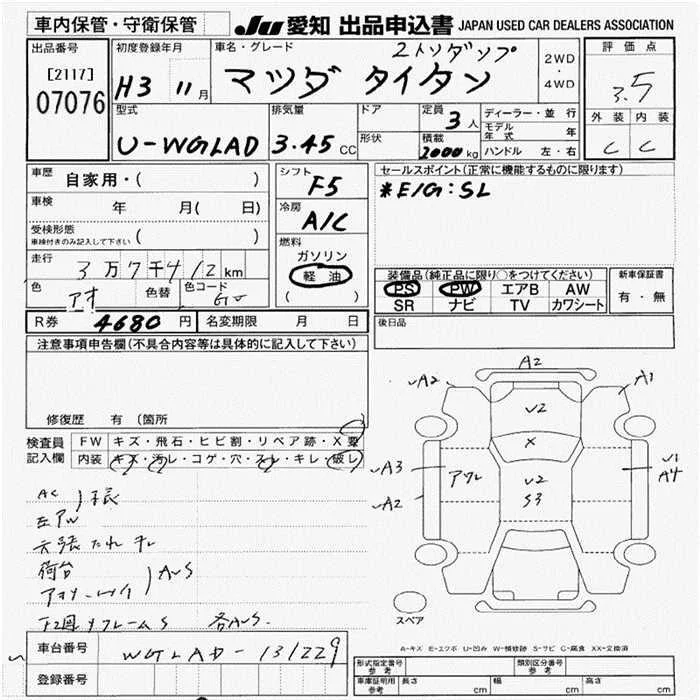 車内保管・守衛保管
JU 愛知 出品申込書 JAPAN USED CAR DEALERS ASSOCIATION
出品番号
[2117]
07076
初度登録年月
H3 11月
車名・グレード
2トンダンプ
マツダ タイタン
2WD・4WD
評価点
3.5
外装 内装
C C
型式
U-WGLAD
排気量
3.45CC
ドア
形状
定員
3人
積載
2000kg
ディーラー・並行
モデル年式 年
ハンドル 左・右
車歴 自家用・( )
車検 年 月( 日)
受検形態
車検付きのみ記入して下さい ( )
走行 3万7千412km
色 アオ 色替 色コード
R券 4680円 名変期限 月 日
シフト
F5
冷房
A/C
燃料
ガソリン
軽油
( )
セールスポイント(正常に機能するものに限ります)
*E/G:SL
装備品(純正品に限り○をつけてください)
PS PW エアB AW
SR ナビ TV カワシート
新車保証書
有・無
後日品
注意事項申告欄(不具合内容等は具体的に記入して下さい)
修復歴 有 〔箇所
検査員記入欄
FW キズ・飛石・ヒビ割・リペア跡・X要
内装 キズ・汚レ・コゲ・穴・スレ・キレ・破レ
A2
A2
A1
U2
X
A3
A2
U2
S3
U1
A4
スペア
A-キズ E-エクボ U-凹み W-補修跡 S-サビ C-腐食 XX-交換済
車台番号 WGLAD-131229
登録番号
形式指定番号 参考
類別区分番号 参考
車庫証明用 参考 長さ cm 幅 cm 高さ cm